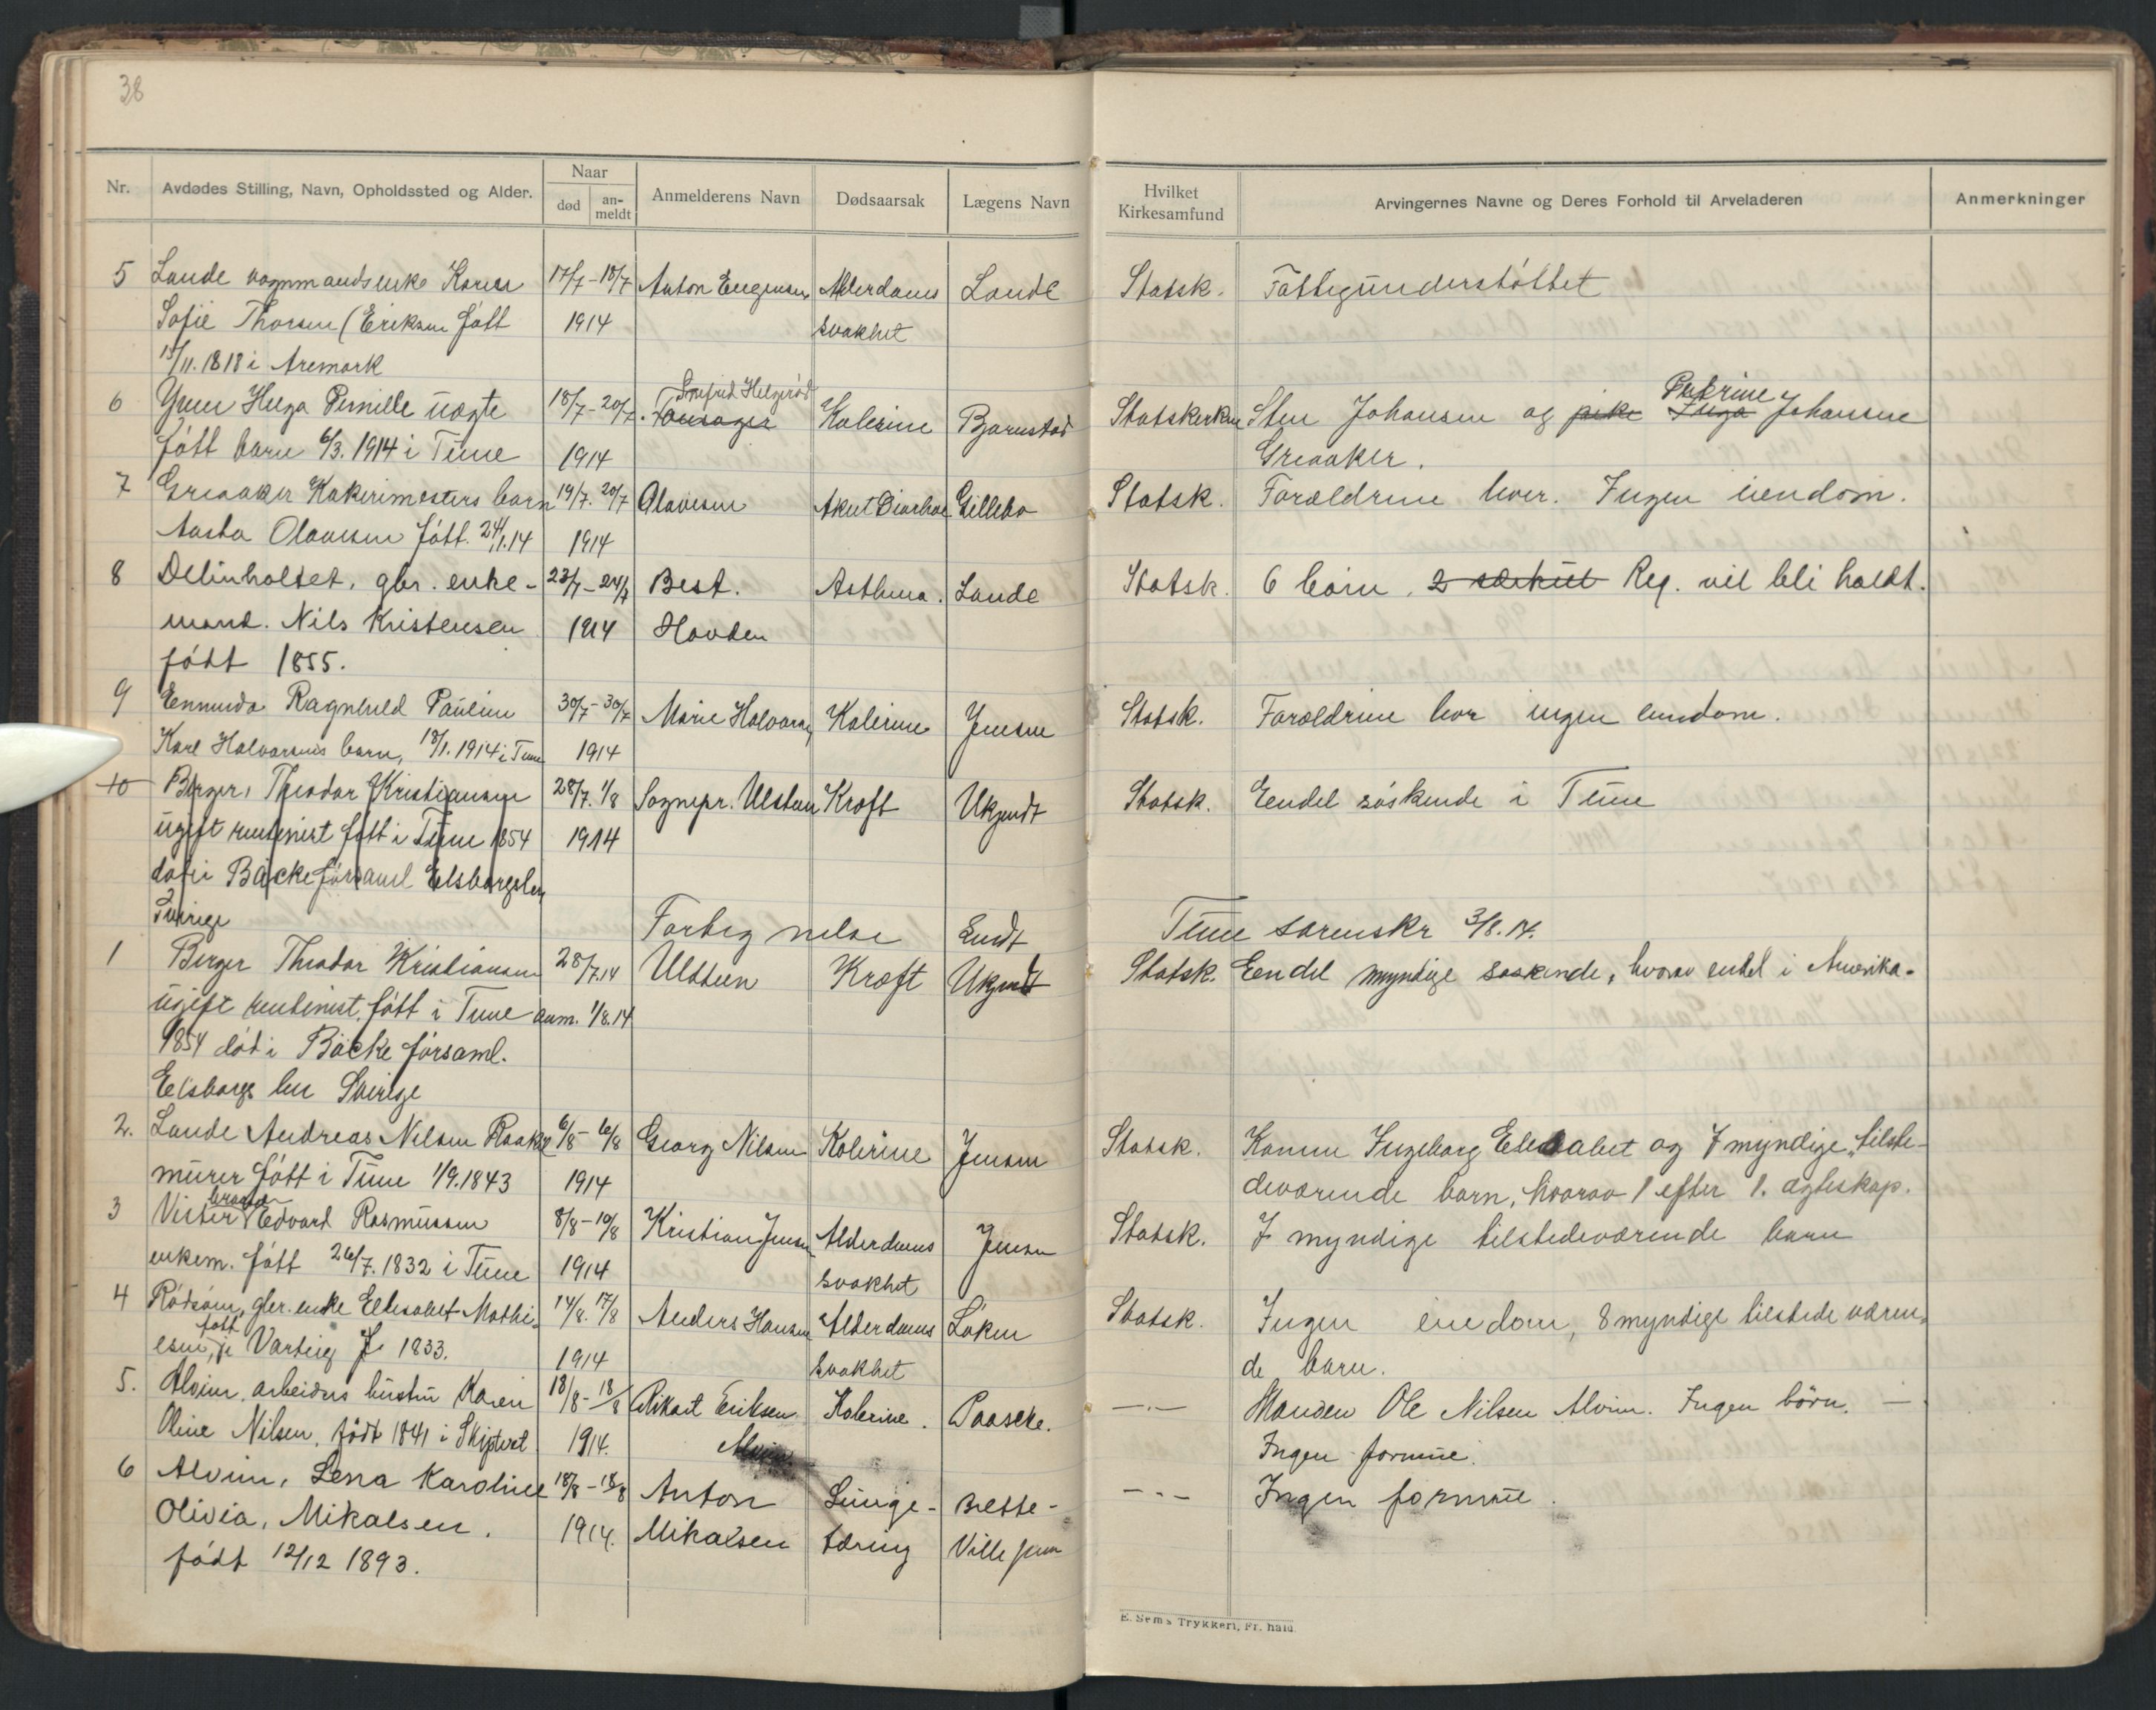 38
Nr. Avdødes Stilling, Navn, Opholdssted og Alder. Naar død an-meldt Anmelderens Navn Dødsaarsak Lægens Navn Hvilket Kirkesamfund Arvingernes Navne og Deres Forhold til Arveladeren Anmerkninger
5 Lande vognmandsenke Karen 17/7-18/7 Anton Alderdoms Lande Statsk. Fattigunderstøttet
Sofie Thorsen (Eriksen født 1914 svakhet
15/11.1818 i Aremark
6 Helga Pernille uægte 18/7-20/7 Helgerød Kolerine Bjørnstad Statskirken Sten Johansen og Petrine Johansen
født barn 6/3.1914 i Tune 1914 Greaaker.
7 Greaaker barn 19/7. 20/7 Olavesen Akut Diarhoe Gillebo Statsk. Forældrene lever. Ingen eiendom.
Aasta Olavesen født 24/1.14 1914
8 gbr. enke- 23/7-24/7 Best. Asthma. Lande Statsk. 6 børn. Reg. vil bli holdt.
mand. Nils Kristensen 1914 Hovden
født 1855.
9 Ragnhild Pauline 30/7-30/7 Marie Kolerine Jensen Statsk. Forældrene har ingen eiendom.
Karl Halvorsens barn, 18/1.1914 i Tune 1914
10 Birger, Theodor Kristiansen 28/7. 1/8 Sognepr. Ulsteen Kræft Ukjendt Statsk. Eendel søskende i Tune
ugift rentenist født i Tune 1854 1914
død i Bäcke församl Elsborgslen
Sverige Forbignelse Endt Tune sorenskr 3/8.14.
1 Birger Theodor Kristiansen 28/7.14 Ulsteen Kræft Ukjendt Statsk. Eendel myndige søskende, hvorav endel i Amerika.
ugift rentenist, født i Tune anm. 1/8.14
1854 død i Bäcke församl.
Elsborgs len Sverige
2. Lande Andreas Nilsen 6/8-6/8 Georg Nilsen Kolerine Jensen Statsk. Konen Ingeborg Elisabet og 7 myndige, tilste-
murer født i Tune 1/9.1843 1914 deværende barn, hvorav 1 efter 1. ægteskap.
3 Vister Edvard Rasmussen 8/8-10/8 Kristian Jensen Alderdoms Jensen Statsk. 7 myndige tilstedeværende barn
enkem. født 26/7.1832 i Tune 1914 svakhet
4 gbr. enke Elisabet Mathi- 14/8. 17/8 Anders Hansen Alderdoms Løken Statsk. Ingen eiedom, 8 myndige tilstedeværen-
født
esen, i Varteig 1833. 1914 svakhet de barn.
5. Alvim, arbeiders hustru Karen 18/8-18/8 Rikart Eriksen Kolerine. Paaske. —.— Manden Ole Nilsen Alvim. Ingen børn. —
Oline Nilsen, født 1841 i Skiptvet 1914. Alvim Ingen formue.
6 Alvim, Lena Karoline 18/8-18/8 Anton Lunge- Brette- —.— Ingen formue.
Olivia, Mikalsen. 1914. Mikalsen tæring Ville
født 12/12 1893.
E. Sems Trykkeri, Fr. hald.